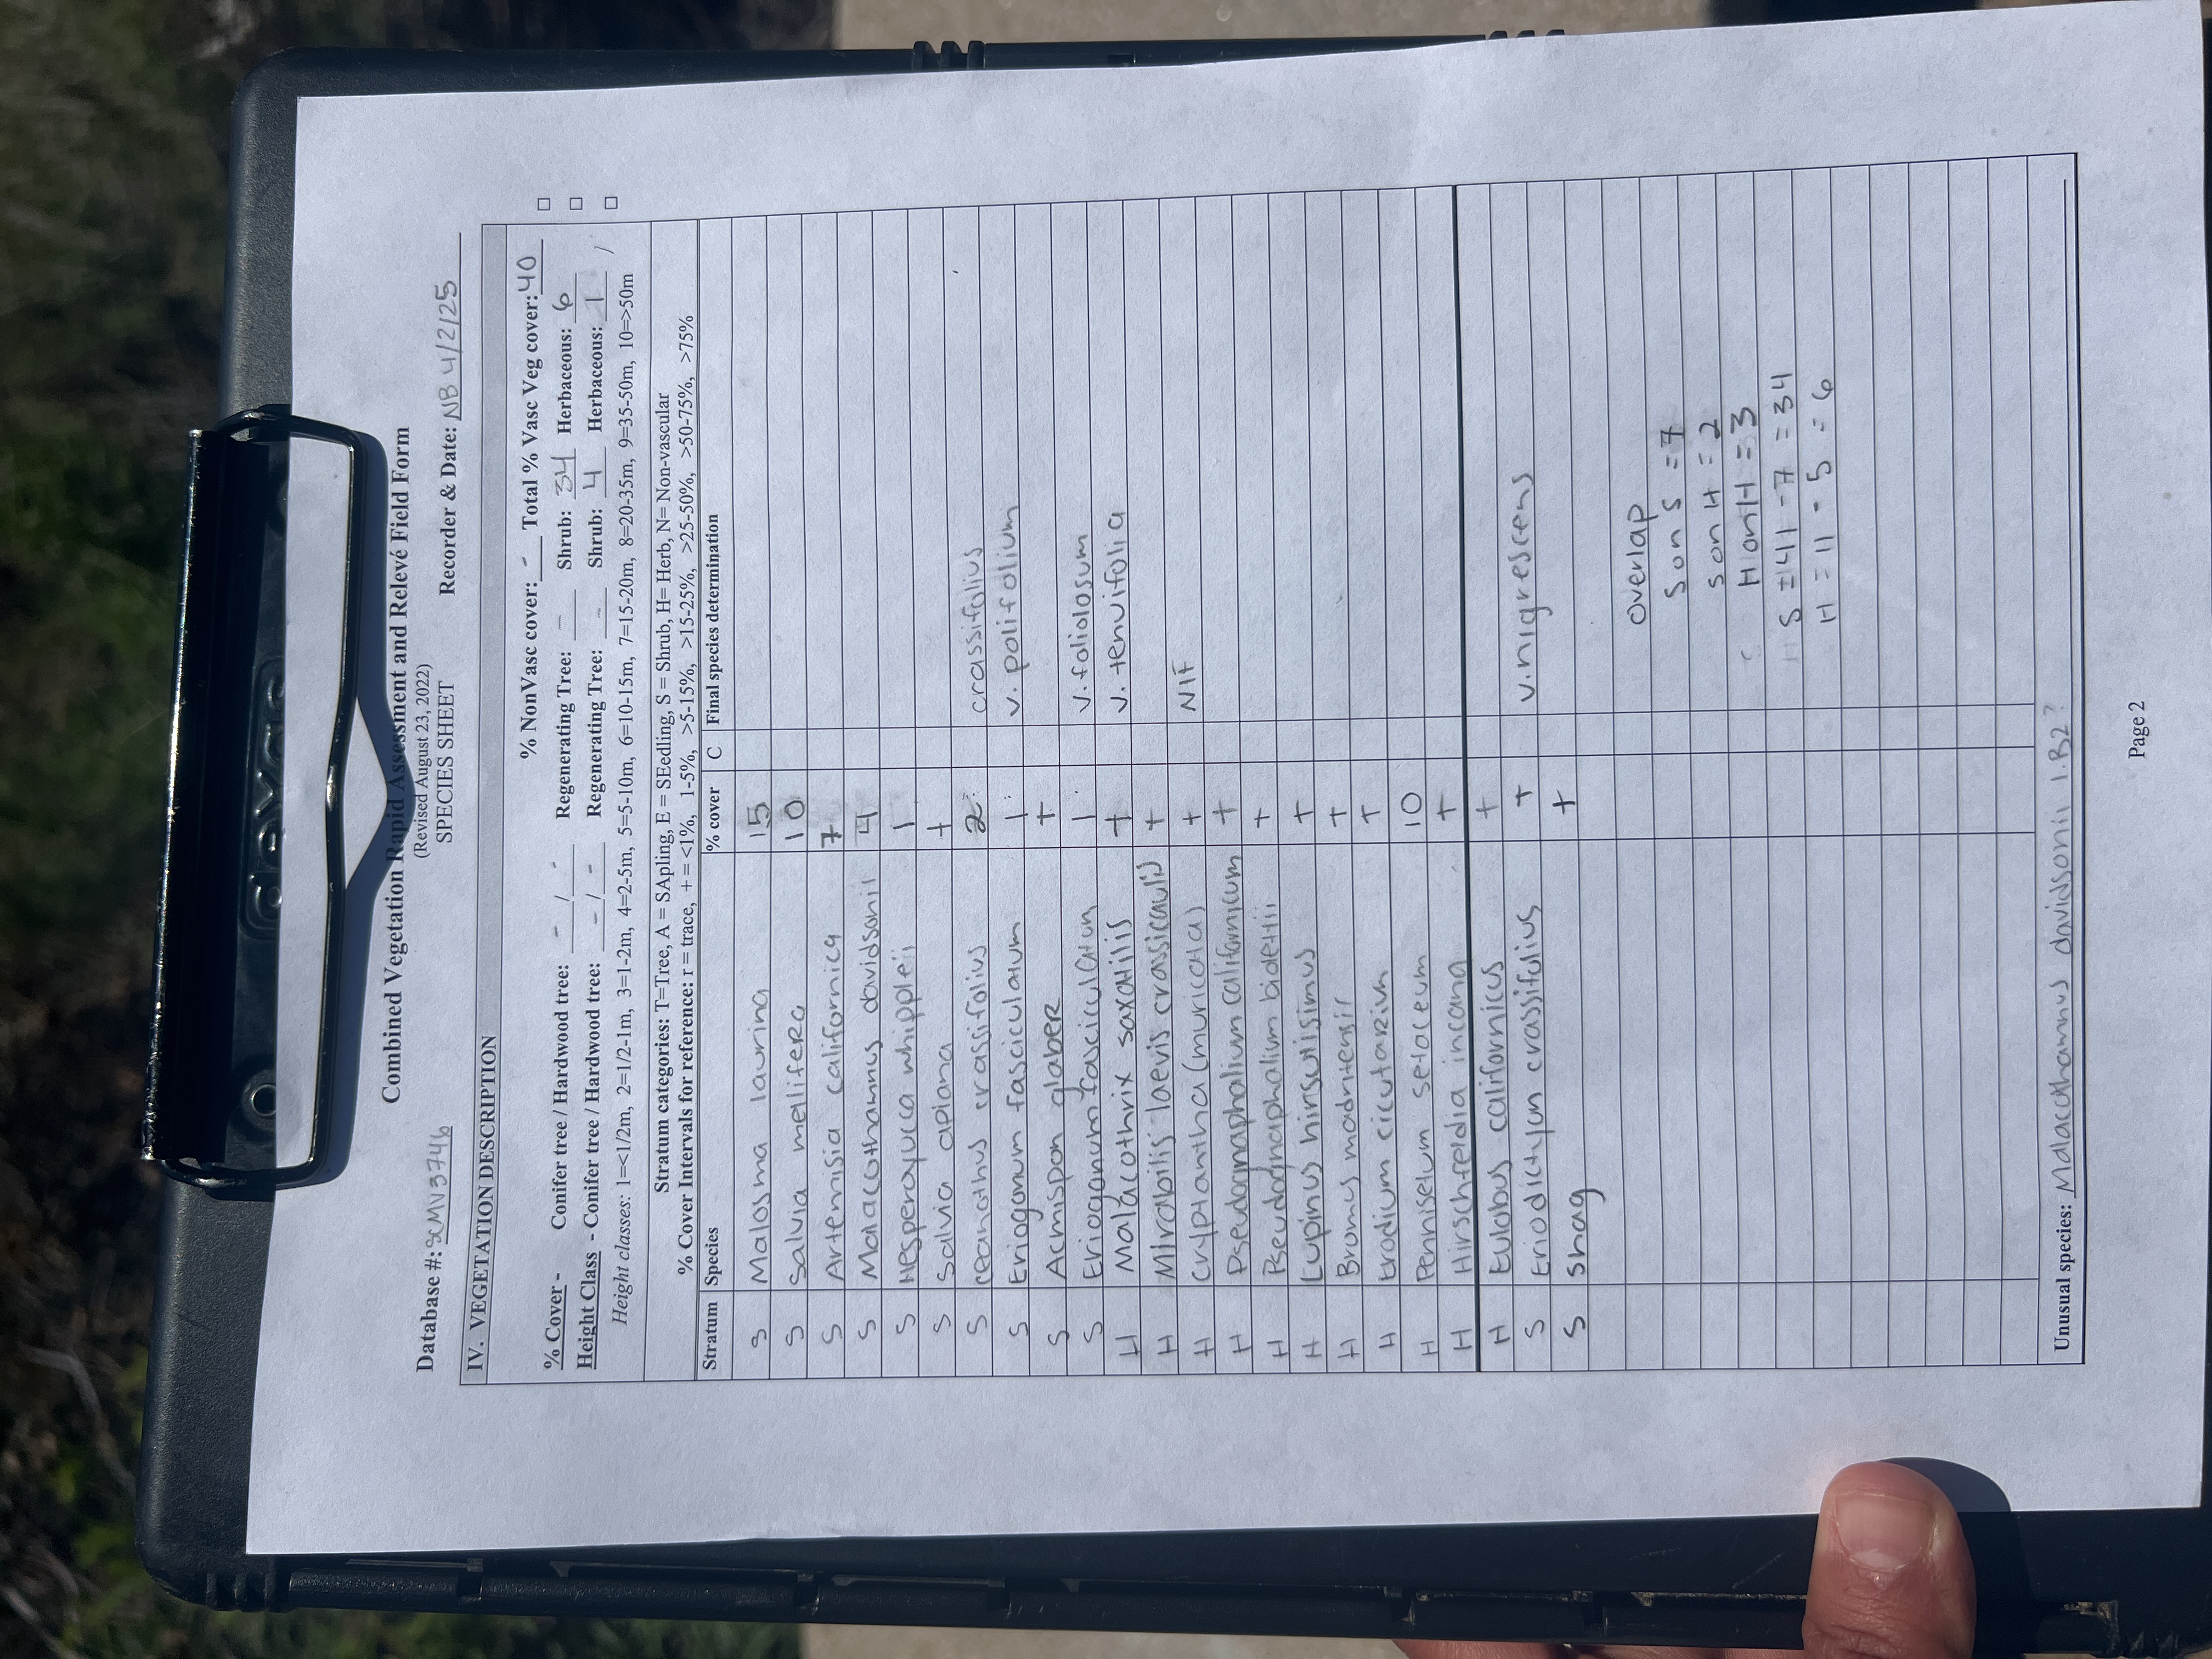 Combined Vegetation Rapid Assessment and Relevé Field Form
(Revised August 23, 2022)
SPECIES SHEET
Database #: SCMV3746 Recorder & Date: NB 4/2/25
IV. VEGETATION DESCRIPTION
% NonVasc cover: - Total % Vasc Veg cover: 40 □
% Cover - Conifer tree / Hardwood tree: - / - Regenerating Tree: - Shrub: 34 Herbaceous: 6 □
Height Class - Conifer tree / Hardwood tree: - / - Regenerating Tree: - Shrub: 4 Herbaceous: 1 □
Height classes: 1=<1/2m, 2=1/2-1m, 3=1-2m, 4=2-5m, 5=5-10m, 6=10-15m, 7=15-20m, 8=20-35m, 9=35-50m, 10=>50m
Stratum categories: T=Tree, A = SApling, E = SEedling, S = Shrub, H= Herb, N= Non-vascular
% Cover Intervals for reference: r = trace, + = <1%, 1-5%, >5-15%, >15-25%, >25-50%, >50-75%, >75%
Stratum Species % cover C Final species determination
S Malosma laurina 15
S Salvia mellifera 10
S Artemisia californica 7
S Malacothamnus davidsonii 4
S Hesperoyucca whipplei 1
S Salvia apiana +
S Ceanothus crassifolius 2 crassifolius
S Eriogonum fasciculatum 1 v. polifolium
S Acmispon glaber +
S Eriogonum fasciculatum 1 v. foliolosum
H Malacothrix saxatilis + v. tenuifolia
H Mirabilis laevis crassicaulis +
H Cryptantha (muricata) + NIF
H Pseudognaphalium californicum +
H Pseudognaphalium biolettii +
H Lupinus hirsutissimus +
H Bromus madritensis +
H Erodium cicutarium +
H Pennisetum setaceum 10
H Hirschfeldia incana +
H Eulobus californicus +
S Eriodictyon crassifolius + v. nigrescens
S snag +
overlap
S on S = 7
S on H = 2
H on H = 3
S = 41 - 7 = 34
H = 11 - 5 = 6
Unusual species: Malacothamnus davidsonii 1.B2?
Page 2